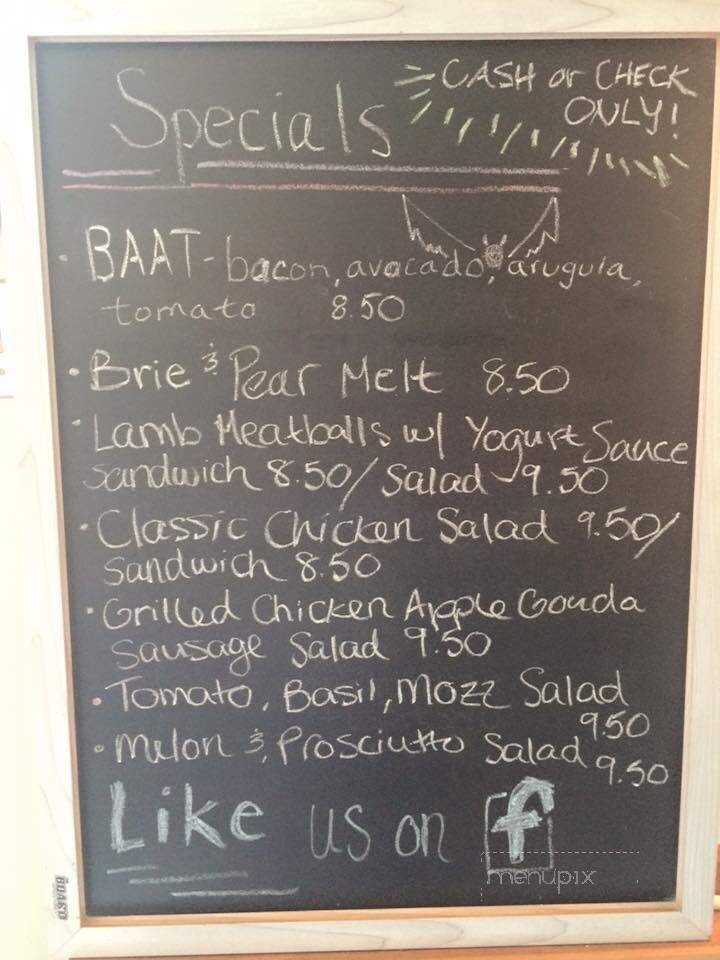 Specials
CASH or CHECK
ONLY!
• BAAT - bacon, avocado, arugula,
tomato 8.50
• Brie & Pear Melt 8.50
• Lamb Meatballs w/ Yogurt Sauce
sandwich 8.50/ Salad 9.50
• Classic Chicken Salad 9.50/
sandwich 8.50
• Grilled Chicken Apple Gouda
Sausage Salad 9.50
• Tomato, Basil, Mozz Salad
9.50
• Melon & Prosciutto Salad
9.50
Like us on f
menupix